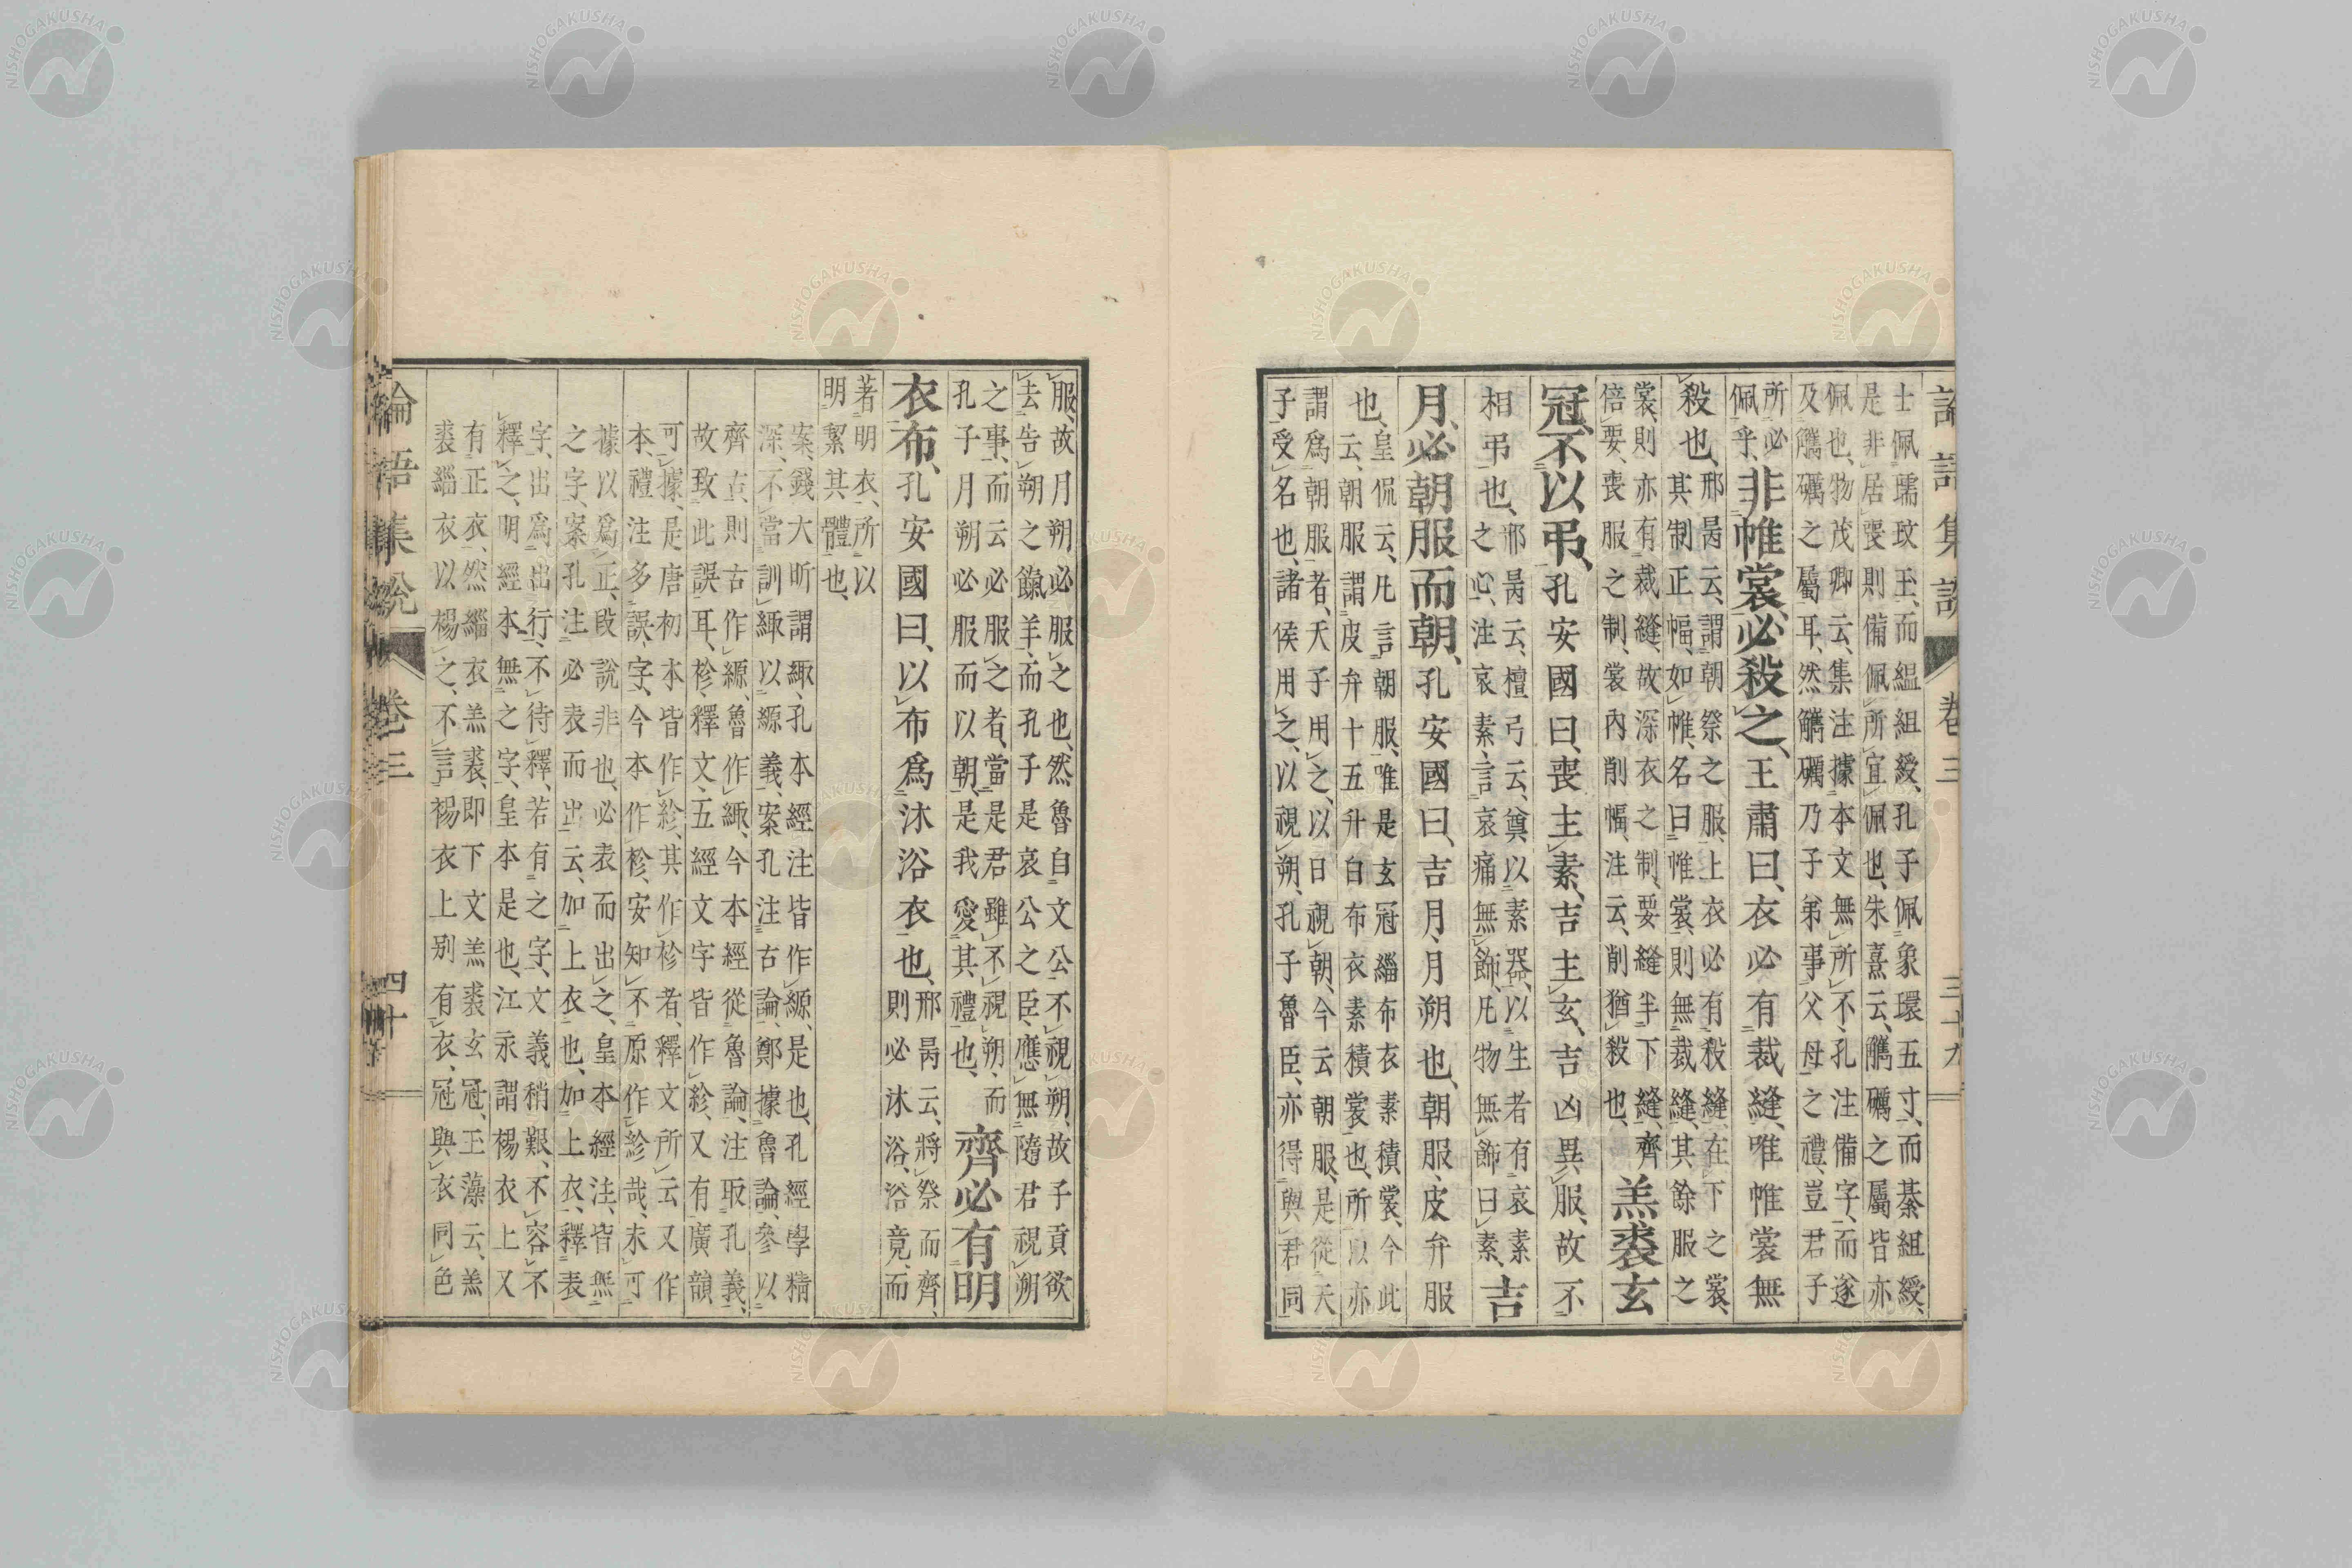 論語集說 卷三 三十九
士佩瓀玟玉、而縕組綬、孔子佩象環五寸、而綦組綬、
是非居喪則備佩所宜佩也、朱熹云、觿礪之屬皆亦
佩也、物茂卿云、集注據本文無所不、孔注備字、而遂
及觿礪之屬耳、然觿礪乃子弟事父母之禮、豈君子
所必
佩乎、
非帷裳、必殺之、王肅曰、衣必有裁縫、唯帷裳無
殺也、
邢昺云、謂朝祭之服、上衣必有殺縫、在下之裳、
其制正幅、如帷、名曰帷裳、則無裁縫、其餘服之
裳、則亦有裁縫、故深衣之制、要縫半下、縫齊
倍要、喪服之制、裳內削幅、注云、削猶殺也、
羔裘玄
冠、不以弔、孔安國曰、喪主素、吉主玄、吉凶異服、故不
相弔也、
邢昺云、檀弓云、奠以素器、以生者有哀素
之心、注哀素、言哀痛無飾、凡物無飾曰素、
吉
月、必朝服而朝、孔安國曰、吉月、月朔也、朝服、皮弁服
也、
皇侃云、凡言朝服、唯是玄冠緇布衣素積裳、今此
云、朝服謂皮弁十五升白布衣素積裳也、所以亦
謂爲朝服者、天子用之、以日視朝、今云朝服、是從天
子受名也、諸侯用之、以視朔、孔子魯臣、亦得與君同
服、故月朔必服之也、然魯自文公不視朔、故子貢欲
去告朔之餼羊、而孔子是哀公之臣、應無隨君視朔
之事、而云必服之者、當是君雖不視朔、而
孔子月朔必服而以朝、是我愛其禮也、
齊必有明
衣、布、孔安國曰、以布爲沐浴衣也、
邢昺云、將祭而齊、
則必沐浴、浴竟、而
著明衣、所以
明絜其體也、
案、錢大昕謂緅、孔本經注皆作縓、是也、孔經學精
深、不當訓緅以縓義、案孔注古論、鄭據魯論、參以
齊古、則古作縓、魯作緅、今本經從魯論、注取孔義、
故致此誤耳、袗、釋文、五經文字皆作紾、又有廣韻
可據、是唐初本皆作紾、其作袗者、釋文所云又作
本、禮注多誤字、今本作袗、安知不原作紾哉、未可
據以爲正、段說非也、必表而出之、皇本經注、皆無
之字、案孔注必表而出云、加上衣也、加上衣、釋表
字、出爲出行、不待釋、若有之字、文義稍艱、不容不
釋之、明經本無之字、皇本是也、江永謂楊衣上又
有正衣、然緇衣羔裘、即下文羔裘玄冠、玉藻云、羔
裘緇衣以楊之、不言裼衣上别有衣、冠與衣同色
論語集說 卷三 四十